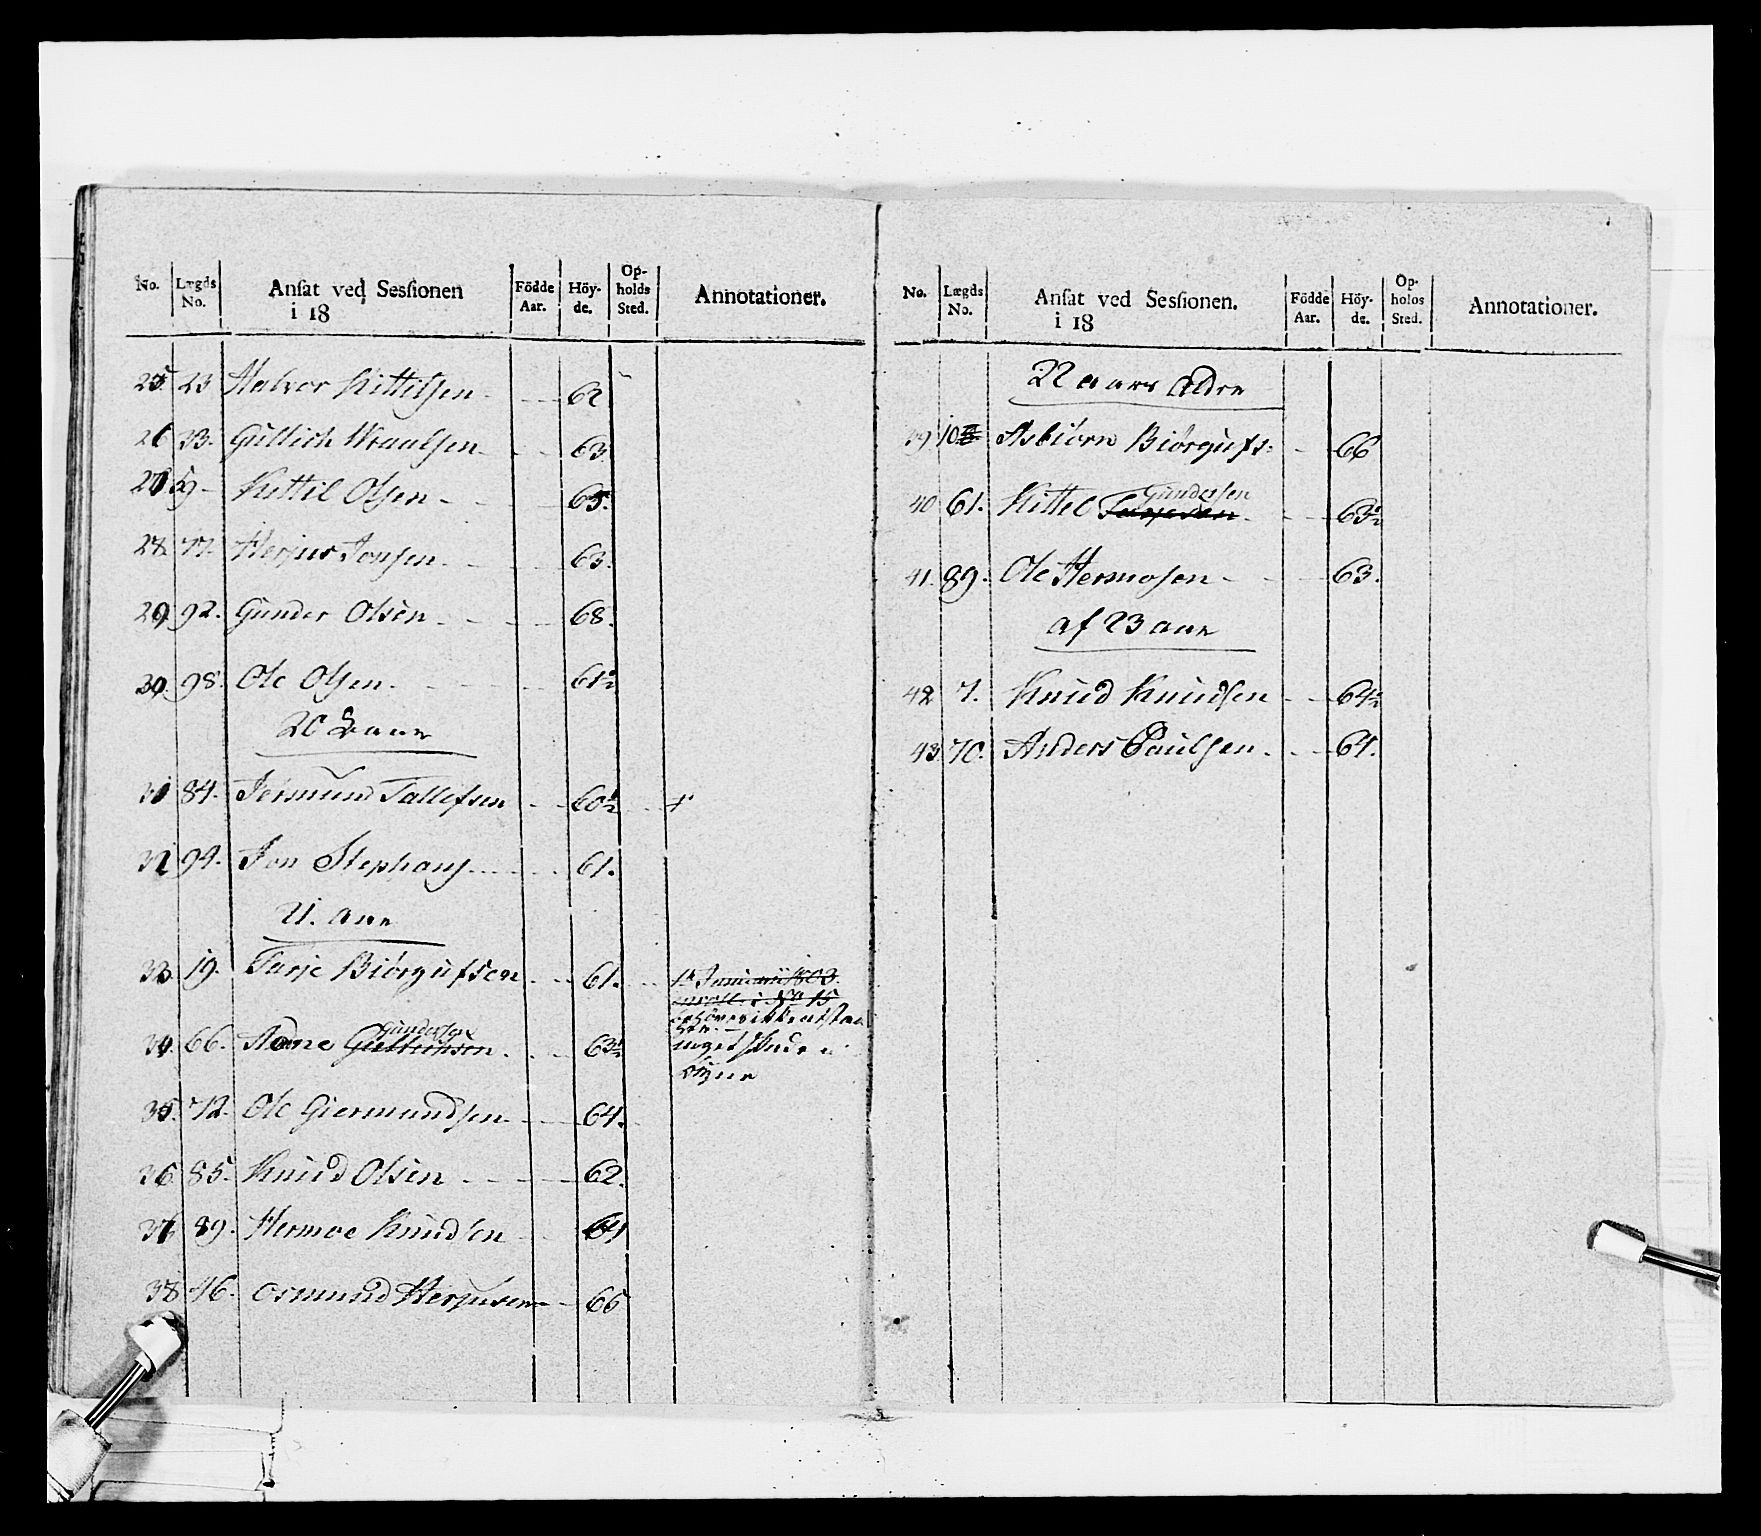 No. Lægds No. Ansat ved Sessionen i 18 Födde Aar. Höyde. Opholds Sted. Annotationer.
25. 23 Halvor Kittilsen - 62
26 33. Gullich Wraalsen - 63
27 59 - Kittil Olsen - 65.
28. 77. Herjus Jonsen - 63.
29. 92. Gunder Olsen - 68.
30. 98. Ole Olsen. - 61½
20 aar
31 84. Jermund Tallefsen - 60½ +
32 94. Jon Stephans - 61.
21. aar
33. 19. Tarje Biörgufsen - 61. 1803
No 15
34. 66. Aanne Gundersen Gullichsen. - 63½
35. 72. Ole Giermundsen - 64.
36 85. Knud Olsen - 62.
37 89. Hermoe Knudsen 64
38 46. Osmund Herjusen - 66
No. Lægds No. Ansat ved Sessionen. i 18 Födde Aar. Höyde. Opholos Sted. Annotationer.
22 aars Aldre
39 10 Asbiörn Biörgufs: - 66
40 61. Kittel Gundersen - 63½
41. 89. Ole Hermosen - 63.
af 23 aar
42 7. Knud Knudsen - 64½
43. 70. Anders Paulsen. - 64.